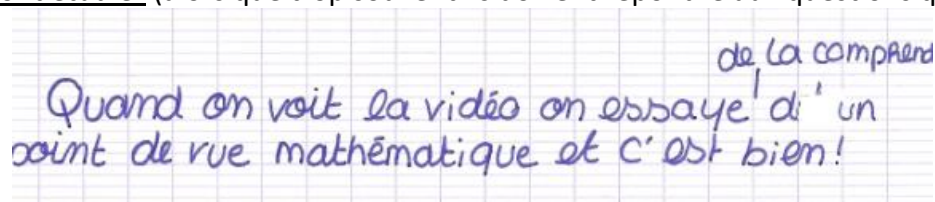 de la comprend
Quand on voit la vidéo on essaye d' un
point de vue mathématique et c'est bien!